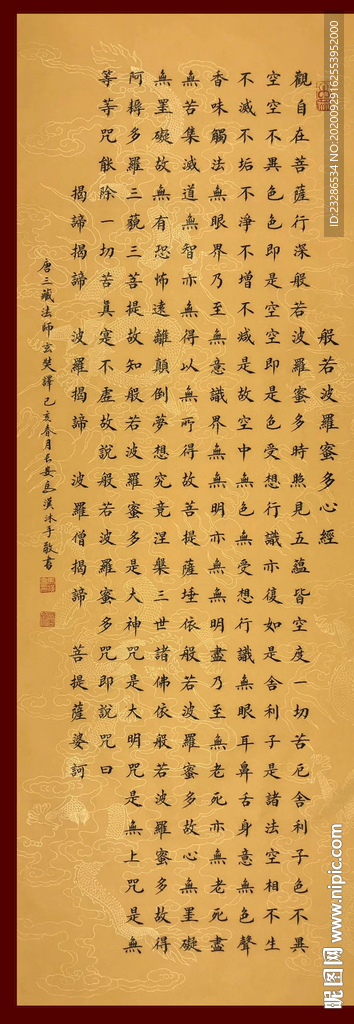 般若波羅蜜多心經
觀自在菩薩行深般若波羅蜜多時照見五蘊皆空度一切苦厄舍利子色不異
空空不異色色即是空空即是色受想行識亦復如是舍利子是諸法空相不生
不滅不垢不淨不增不減是故空中無色無受想行識無眼耳鼻舌身意無色聲
香味觸法無眼界乃至無意識界無無明亦無無明盡乃至無老死亦無老死盡
無苦集滅道無智亦無得以無所得故菩提薩埵依般若波羅蜜多故心無罣礙
無罣礙故無有恐怖遠離顛倒夢想究竟涅槃三世諸佛依般若波羅蜜多故得
阿耨多羅三藐三菩提故知般若波羅蜜多是大神咒是大明咒是無上咒是無
等等咒能除一切苦眞實不虛故說般若波羅蜜多咒即說咒曰
揭諦揭諦 波羅揭諦 波羅僧揭諦 菩提薩婆訶
唐三藏法師玄奘譯 己亥春月 漢沐手敬書
ID:23286534 NO:20200929162553952000
昵图网 www.nipic.com